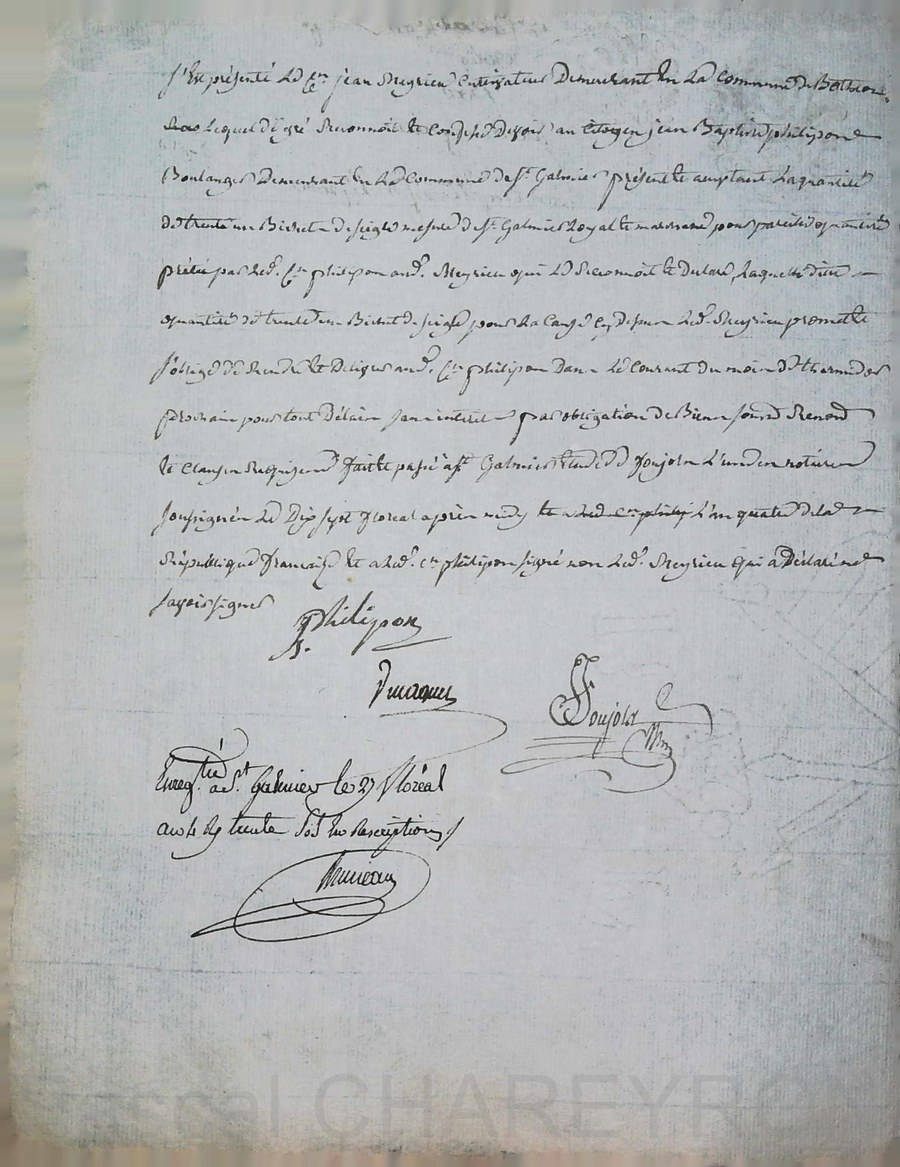 S'est présenté Le Cen jean Meyrieu Cultivateur Demeurant En La Commune de
Lequel de gré Reconnoit Et Confesse Devoir au Citoyen jean Baptiste philipon
Boulanger Demeurant En La Commune de St. Galmier présent Et aceptant La quantité
de trente un Bichet de seigle mesure de St. Galmier Loyal Et marchand pour pareille quantité
prêté par Led. Cen philipon aud. Meyrieu qui Le Reconnoit Et Declare, Laquelle dite
quantité de trente un Bichet de seigle pour La Cause Cy Dessus Led. Meyrieu promet Et
s'oblige de Rendre Et Delivrer aud. Cen philipon Dans Le Courant du mois de thermidor
prochain pour tout Délai sans interet par obligation de Biens soumis Renond
Et Clauses Requises fait Et passé a St Galmier Etude de L'un des notaires
soussignés Le Dix sept floreal après midy Et a Led Cen philip L'an quatre de la
République française Et a Led. Cen philipon signé non Led. Meyrieu qui a Déclaré ne
savoir signer
Philipon
Enregtré à St. Galmier le 27 floréal
an 4 trente